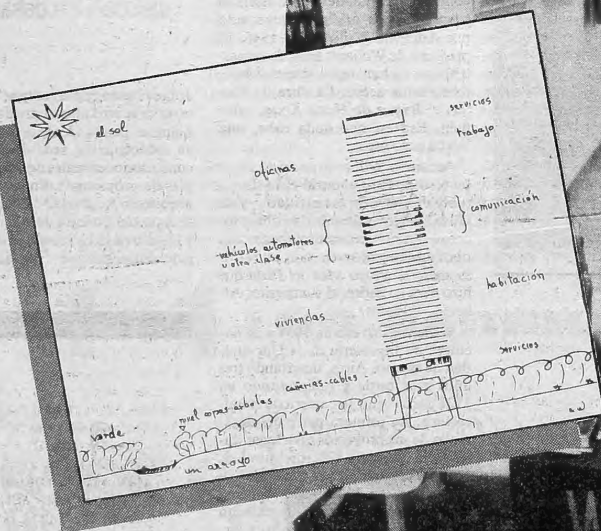 el sol
servicios
trabajo
oficinas
comunicación
vehículos automotores
u otra clase
habitación
viviendas
servicios
cañerías-cables
nivel copas-árboles
verde
un arroyo
a.w